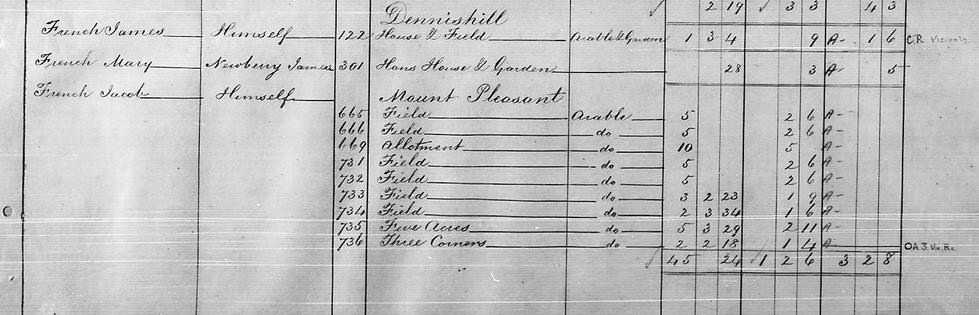 Dennishill 2 19 3 3 4 3
French James Himself 122 House & Field Arable & Garden 1 3 4 9 A 1 6 C.R.
French Mary Newberry James 301 House & Garden 28 3 A 5
French Jacob Himself Mount Pleasant
665 Field Arable 5 2 6 A
666 Field do 5 2 6 A
669 Allotment do 10 5 A
731 Field do 5 2 6 A
732 Field do 5 2 6 A
733 Field do 3 2 23 1 9 A
734 Field do 2 3 34 1 6 A
735 Five Acres do 5 3 29 2 11 A
736 Three Corners do 2 2 18 1 4 A
45 24 1 2 6 3 2 8